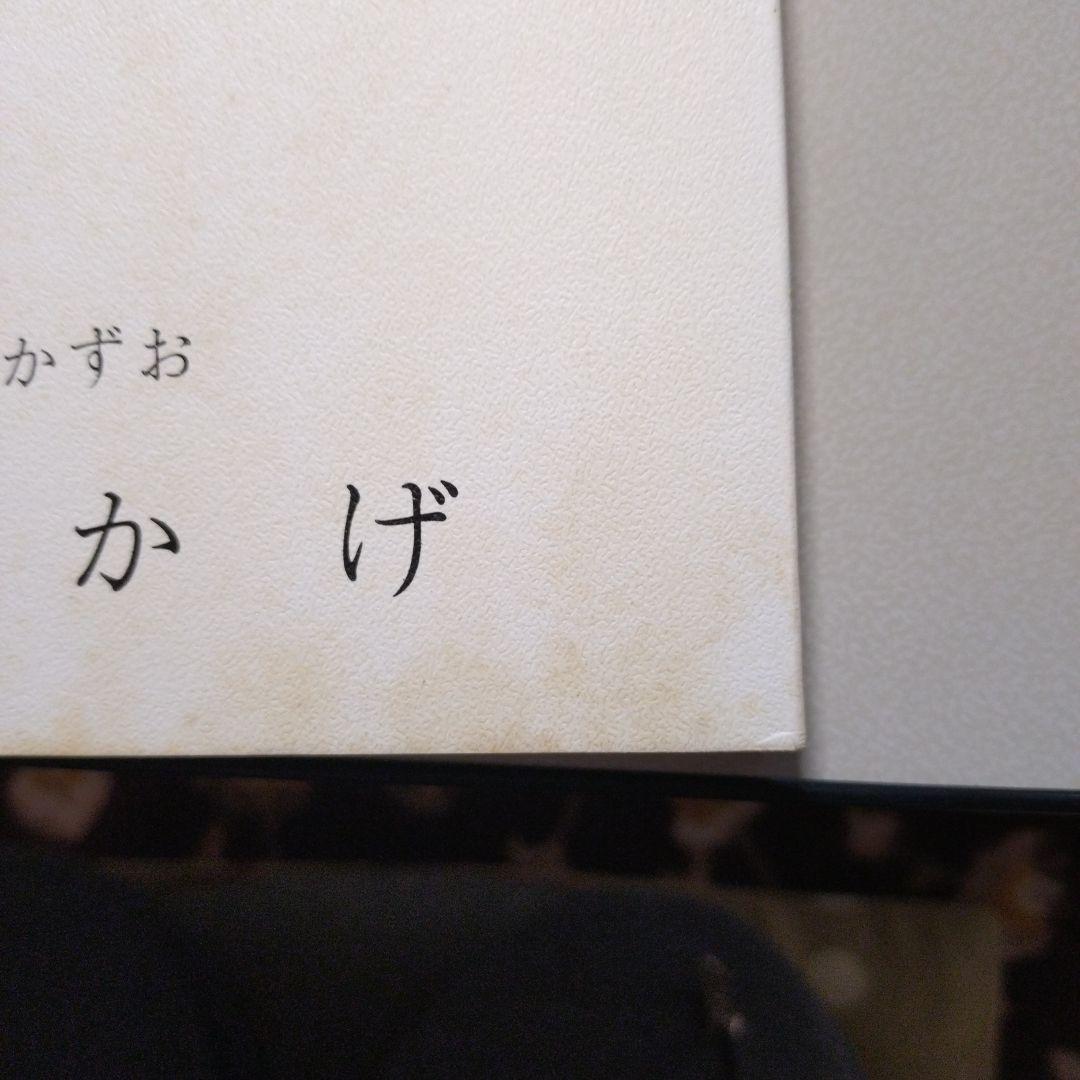 かずお
かげ